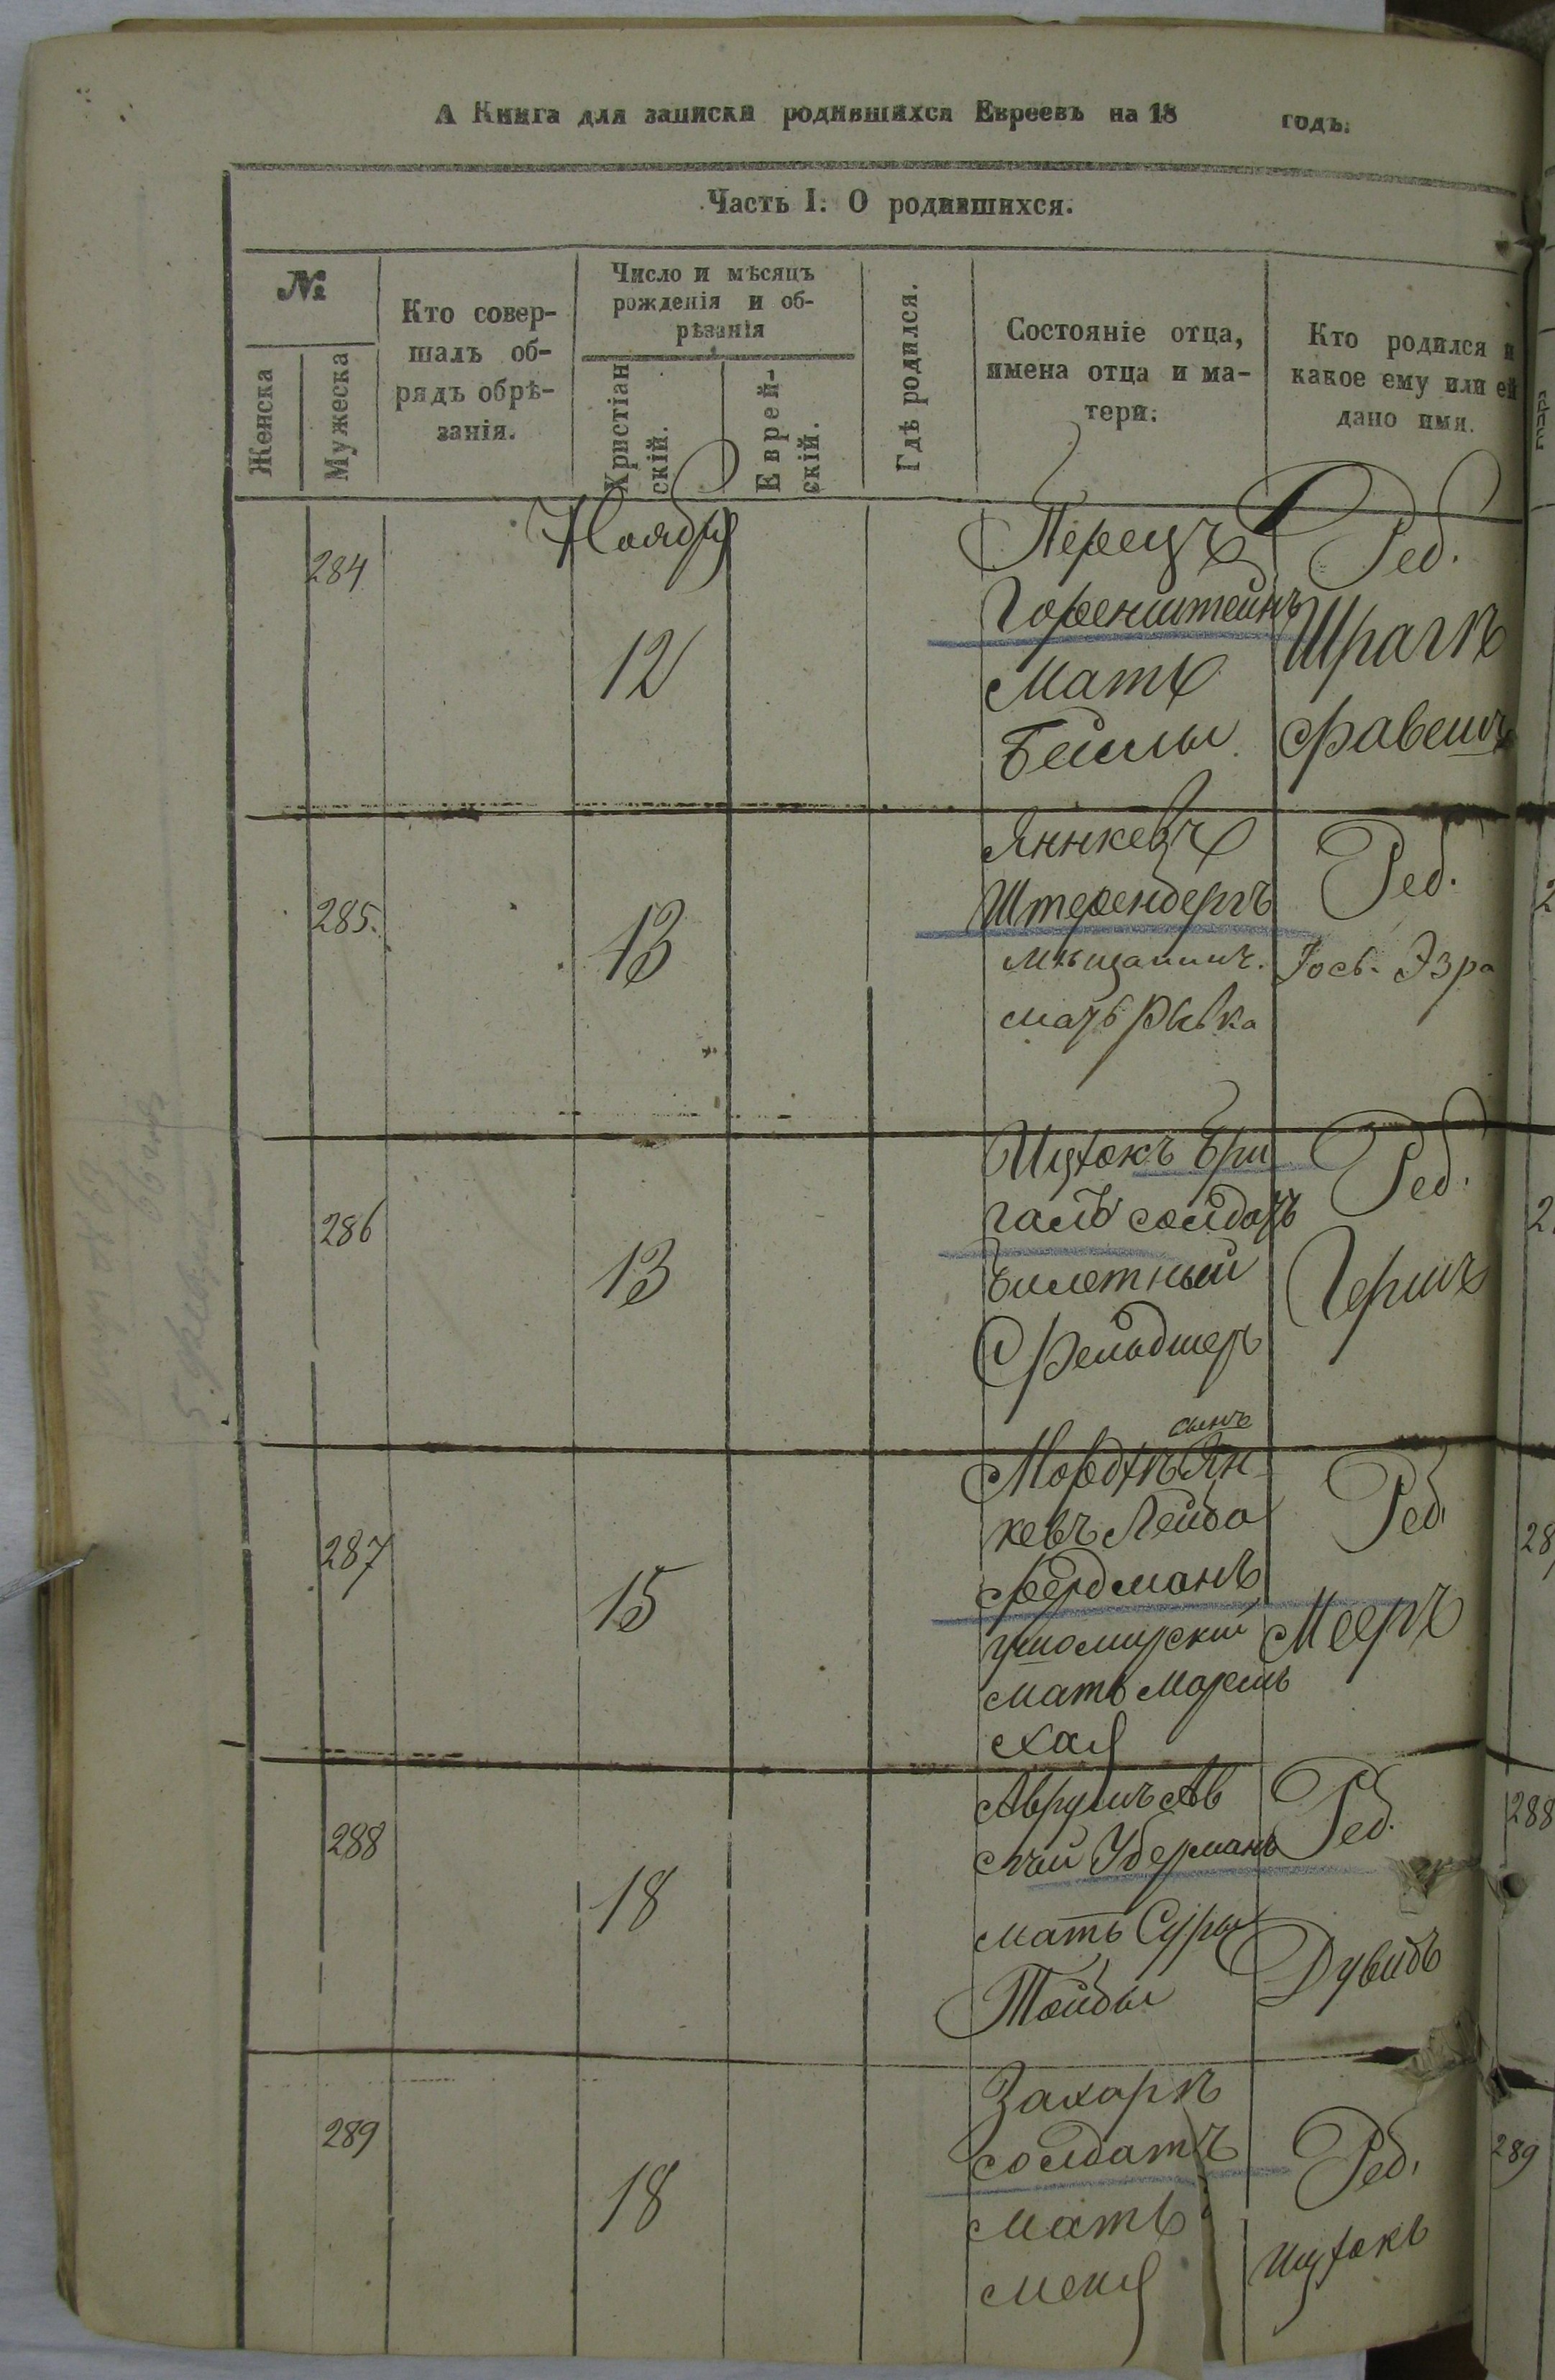 А Книга для записки родившихся Евреевъ на 18 годъ.
Часть I. О родившихся.
№
Женска
Мужеска
Кто совер-
шалъ об-
рядъ обрѣ-
занія.
Число и мѣсяцъ
рожденія и об-
рѣзанія
Христіан
скій.
Еврей-
скій.
Гдѣ родился.
Состояніе отца,
имена отца и ма-
тери.
Кто родился и
какое ему или ей
дано имя.
284
Ноября
12
Перецъ
Горенштейнъ
Мать
Бейлы
Реб.
Шрага
285.
13
Яннкевъ
Штеренбергъ
мѣщанинъ.
мать Рывка
Реб.
Іось. Эзра
286
13
Ицхокъ Бри
галъ солдатъ
билетный
Фельдшеръ
Реб.
Гершъ
287
15
Мордхъ сынъ Ян
кевъ Лейба
Фердманъ
ушомирскій
мать
Хая
Реб.
Мееръ
288
18
Аврумъ Ав
Уберманъ
мать Суры
Тойбы
Реб.
Дувидъ
288
289
18
Захаръ
солдатъ
мать
Меня
Реб.
Ицхокъ
289